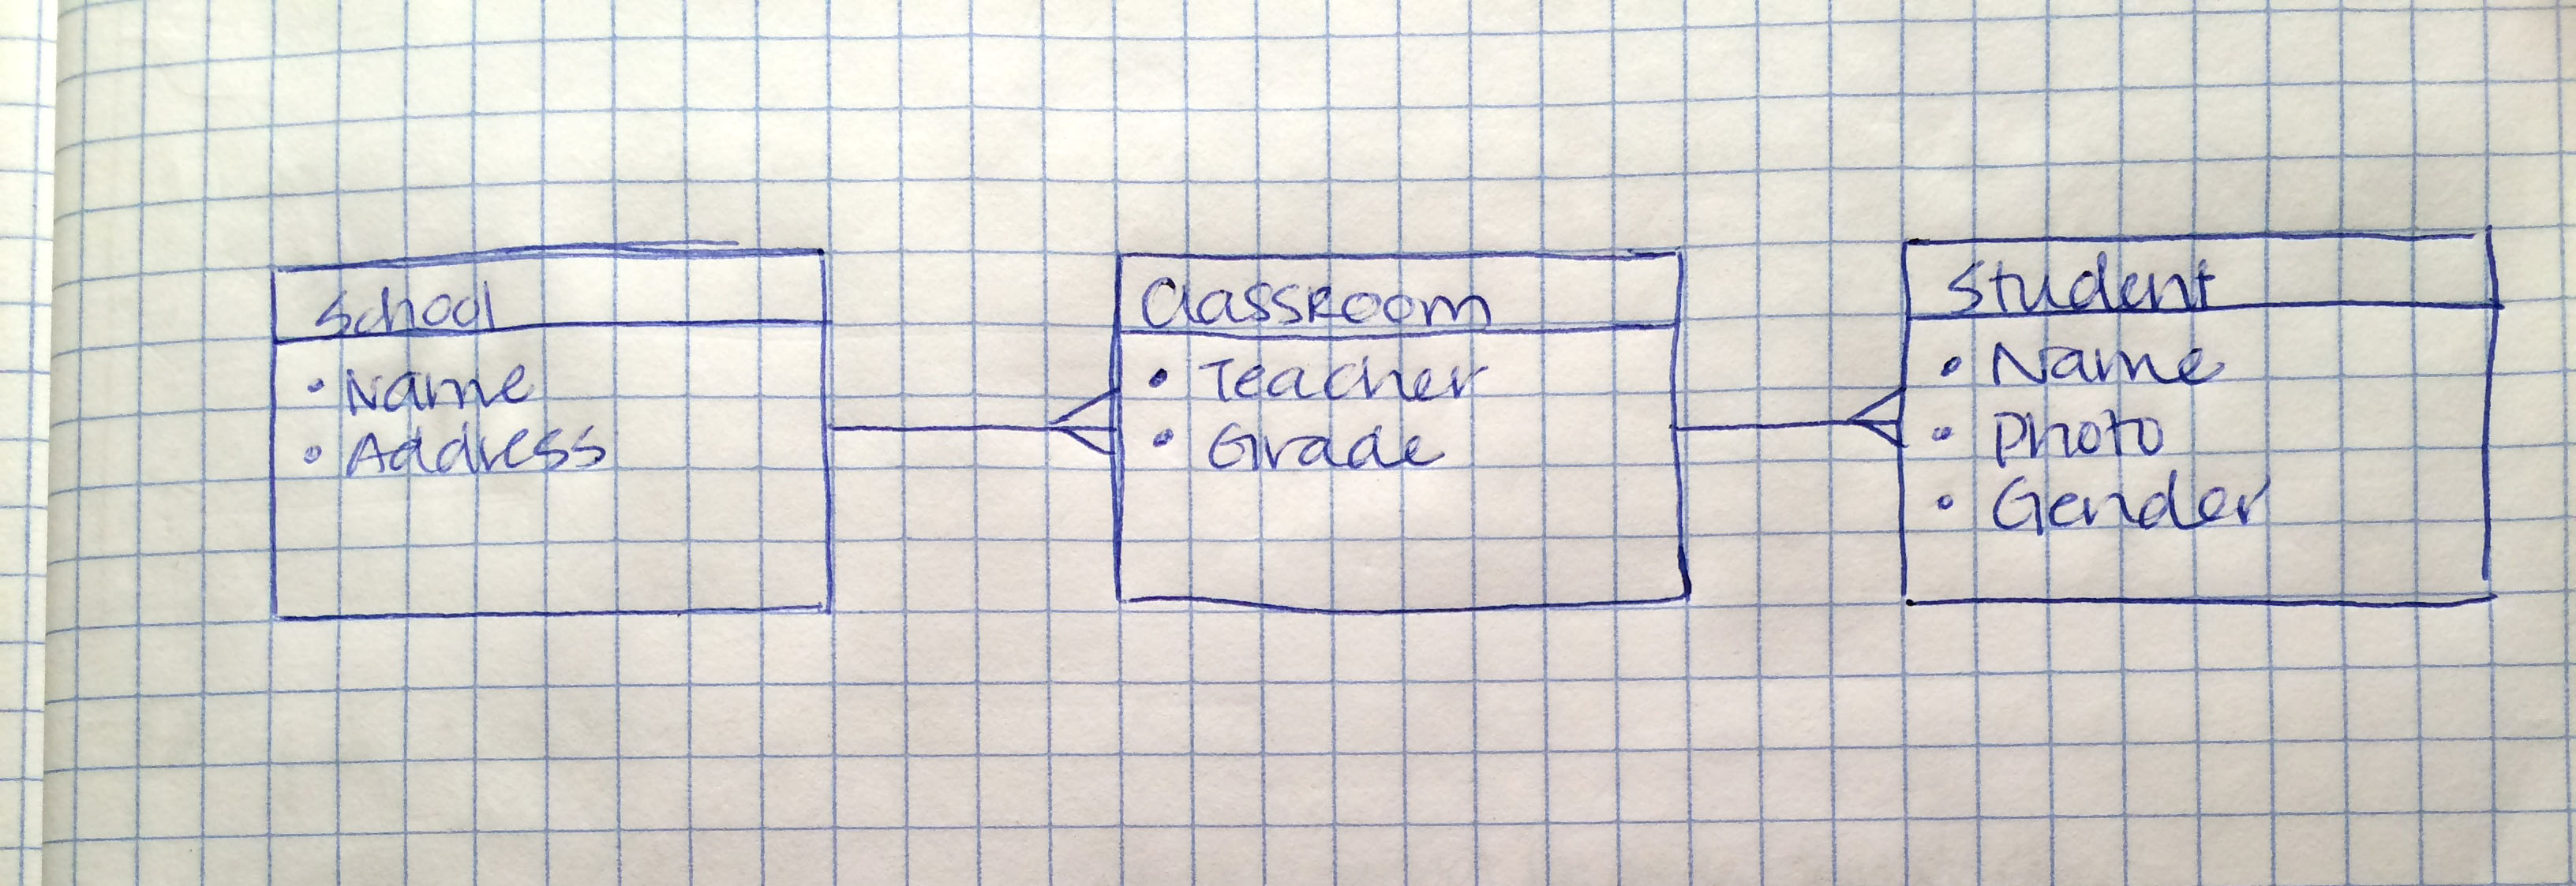 School
• Name
• Address
Classroom
• Teacher
• Grade
Student
• Name
• Photo
• Gender